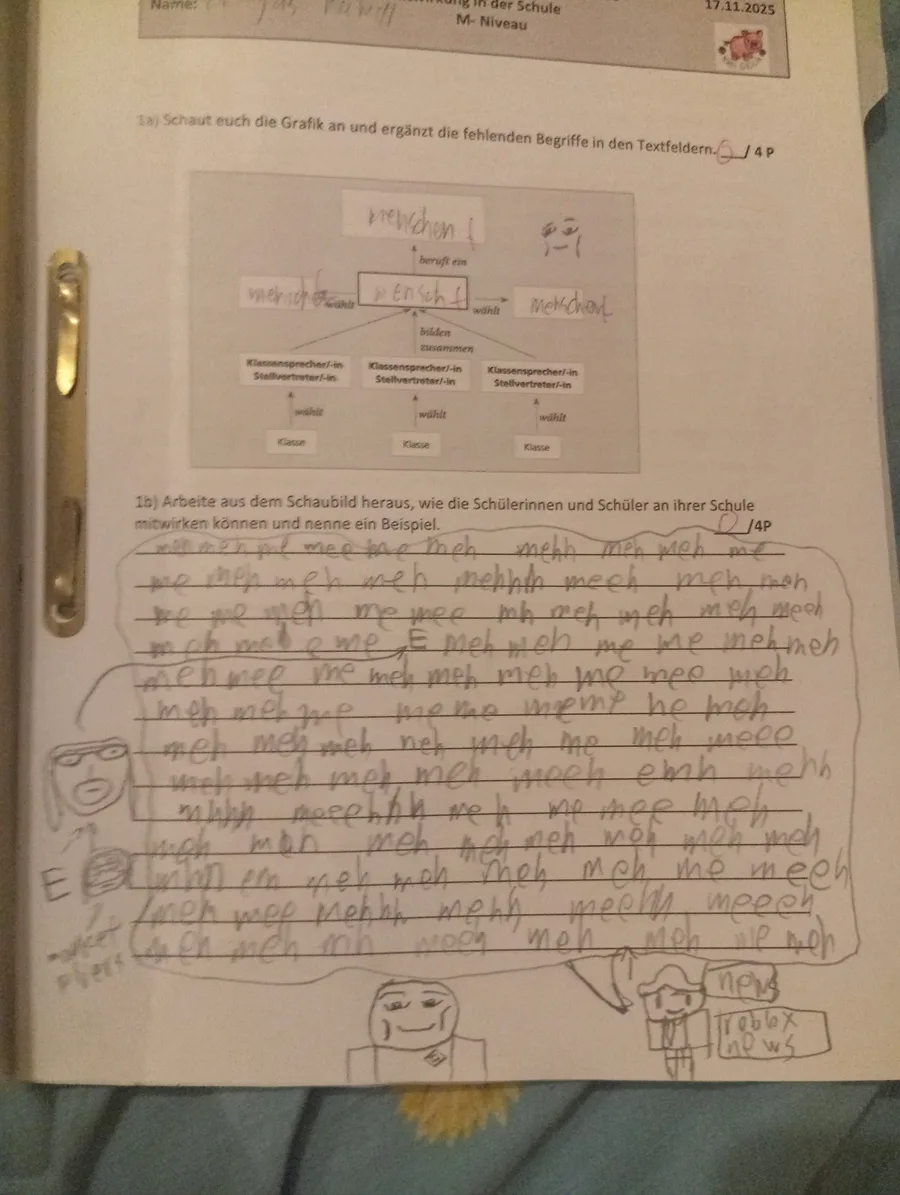 Name:
in der Schule
M- Niveau
17.11.2025
1a) Schaut euch die Grafik an und ergänzt die fehlenden Begriffe in den Textfeldern. 0/ 4 P
menschen !
beruft ein
wählt
mensch
wählt
bilden
zusammen
Klassensprecher/-in Klassensprecher/-in Klassensprecher/-in
Stellvertreter/-in Stellvertreter/-in Stellvertreter/-in
wählt wählt wählt
Klasse Klasse Klasse
1b) Arbeite aus dem Schaubild heraus, wie die Schülerinnen und Schüler an ihrer Schule
mitwirken können und nenne ein Beispiel. 0/4P
meh meh me mee me meh mehh meh meh me
me meh meh meh mehhh meeh meh meh
me me meh me mee mh meh meh meh meeh
meh meh e me E meh meh me me meh meh
meh mee me meh meh meh me mee meh
meh meh me me me meme he meh
meh meh meh neh meh me meh meee
meh meh meh meh meeh emh mehh
mhhh meeehhh me h me mee meh
meh meh meh meh meh meh meh meh
mhh em meh meh meh meh me meeh
E
meh mee mehhh mehh meehh meeeh
meh meh mh meeh meh meh me meh
news
roblox
news